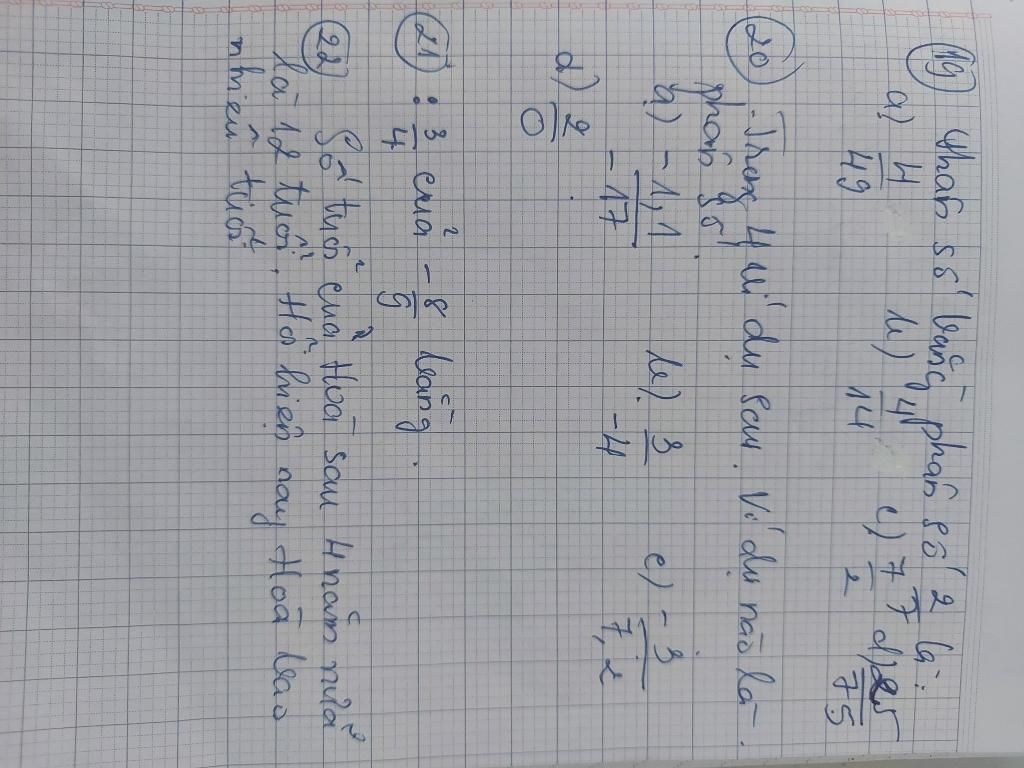 19) Phân số bằng phân số 2/7 là:
a) 4/49 b) 4/14 c) 7/2 d) 25/75
20) Trong 4 ví dụ sau. Ví dụ nào là
phân số.
a) -1,1/-17 b) 3/-4 c) -3/7,2
d) 2/0.
21) : 3/4 của -8/9 bằng.
22) Số tuổi của Hoà sau 4 năm nữa
là 12 tuổi. Hỏi hiện nay Hoà bao
nhiêu tuổi